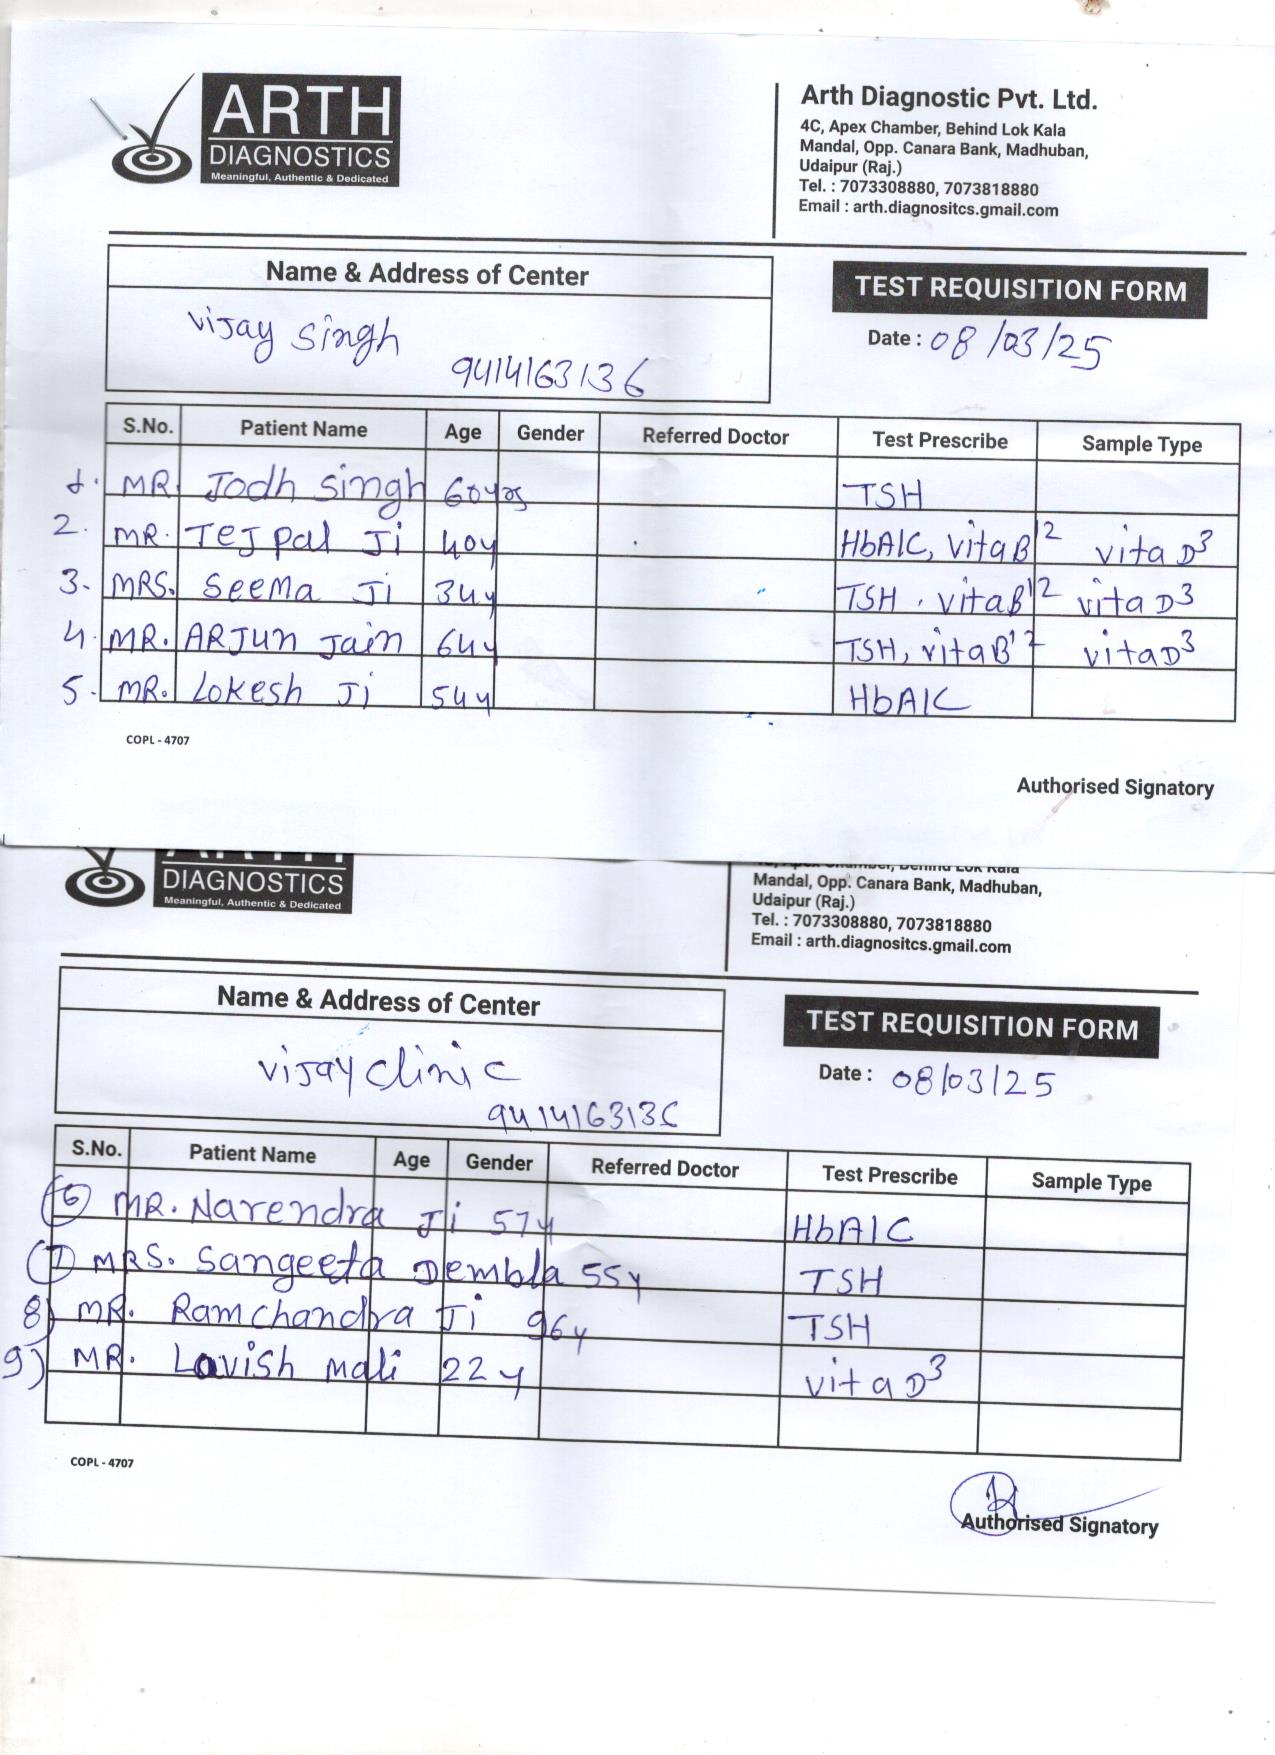 ARTH
DIAGNOSTICS
Meaningful, Authentic & Dedicated
Arth Diagnostic Pvt. Ltd.
4C, Apex Chamber, Behind Lok Kala
Mandal, Opp. Canara Bank, Madhuban,
Udaipur (Raj.)
Tel. : 7073308880, 7073818880
Email : arth.diagnositcs.gmail.com
Name & Address of Center
Vijay Singh
9414163136
TEST REQUISITION FORM
Date : 08/03/25
S.No. Patient Name Age Gender Referred Doctor Test Prescribe Sample Type
1. MR. Jodh Singh 60yrs TSH
2. MR. Tejpal Ji 40y HbA1C, vitaB12 vitaD3
3. MRS. Seema Ji 34y TSH, vitaB12 vitaD3
4. MR. ARJun Jain 64y TSH, vitaB12 vitaD3
5. MR. Lokesh Ji 54y HbA1C
COPL - 4707
Authorised Signatory
ARTH
DIAGNOSTICS
Meaningful, Authentic & Dedicated
4C, Apex Chamber, Behind Lok Kala
Mandal, Opp. Canara Bank, Madhuban,
Udaipur (Raj.)
Tel. : 7073308880, 7073818880
Email : arth.diagnositcs.gmail.com
Name & Address of Center
Vijay Clinic
9414163136
TEST REQUISITION FORM
Date : 08/03/25
S.No. Patient Name Age Gender Referred Doctor Test Prescribe Sample Type
6) MR. Narendra Ji 57y HbA1C
7) MRS. Sangeeta Dembla 55y TSH
8) MR. Ramchandra Ji 96y TSH
9) MR. Lavish Mali 22y vitaD3
COPL - 4707
Authorised Signatory